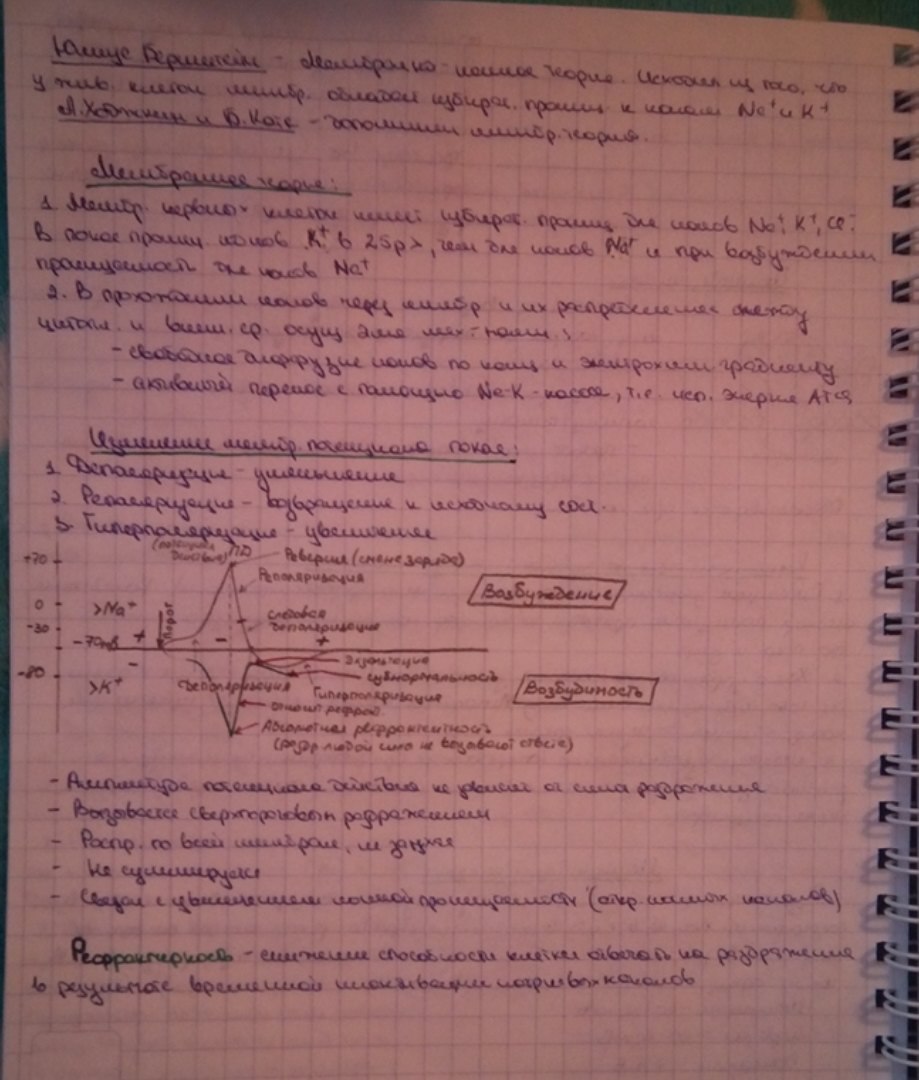 Юлиус Бернштейн - Мембранно-ионная теория. Исходил из того, что
у жив. клеток мембр. обладает избират. прониц. к ионам Na⁺ и K⁺
А.Ходжкин и Б.Катс - дополнили мембр. теорию.
Мембранная теория:
1. Мембр. нервных клеток имеет избират. прониц. для ионов Na⁺, K⁺, Cl⁻.
В покое прониц. ионов K⁺ в 25р >, чем для ионов Na⁺ и при возбуждении
проницаемость для ионов Na⁺
2. В прохождении ионов через мембр. и их распределение между
цитопл. и внеш. ср. осущ. 2мя мех-ками:
- свободное диффузия ионов по конц. и электрохим. градиенту
- активный перенос с помощью Na-K-насоса, т.е. исп. энергия АТФ
Изменения мембр. потенциала покоя:
1. Деполяризация - уменьшение
2. Реполяризация - возвращение к исходному сост.
3. Гиперполяризация - увеличение
(потенциал действия) ПД
+70
Реверсия (смена заряда)
Реполяризация
Возбуждение
0
>Na⁺
порог
следовая деполяризация
-30
-70mB
+
-
+
-
Экзальтация
-80
>K⁺
Деполяризация
субнормальность
Гиперполяризация
Возбудимость
относит. рефрак.
Абсолютная рефрактентность
(раздр. любой силы не вызывают ответа)
- Амплитуда потенциала действия не зависит от силы раздражения
- Вызывается сверхпороговым раздражением
- Распр. по всей мембране, не затухает
- Не суммируется
- Связан с увеличением ионной проницаемости (откр. ионных каналов)
Рефрактерность - снижение способности клетки отвечать на раздражение
в результате временной инактивации натриевых каналов